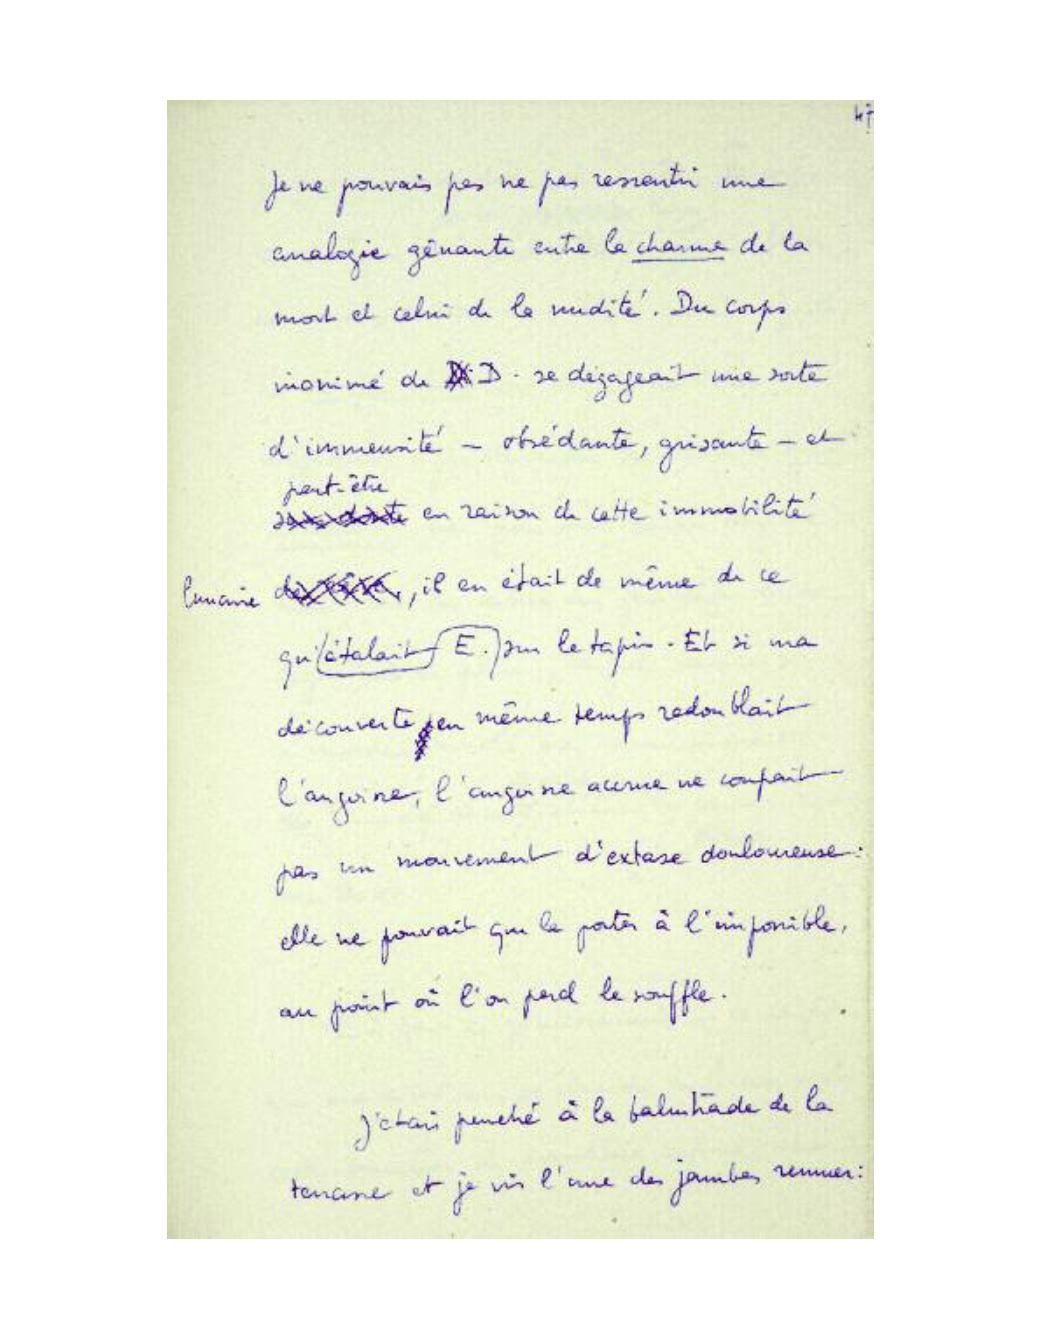 47
Je ne pouvais pas ne pas ressentir une
analogie gênante entre le charme de la
mort et celui de la nudité. Du corps
inanimé de D. se dégageait une sorte
d'immensité – obsédante, grisante – et
peut-être
sans doute en raison de cette immobilité
lunaire, il en était de même de ce
qu'étalait E. sur le tapis. Et si ma
découverte en même temps redoublait
l'angoisse, l'angoisse accrue ne coupait
pas un mouvement d'extase douloureuse:
elle ne pouvait que le porter à l'impossible,
au point où l'on perd le souffle.
J'étais penché à la balustrade de la
terrasse et je vis l'une des jambes remuer: